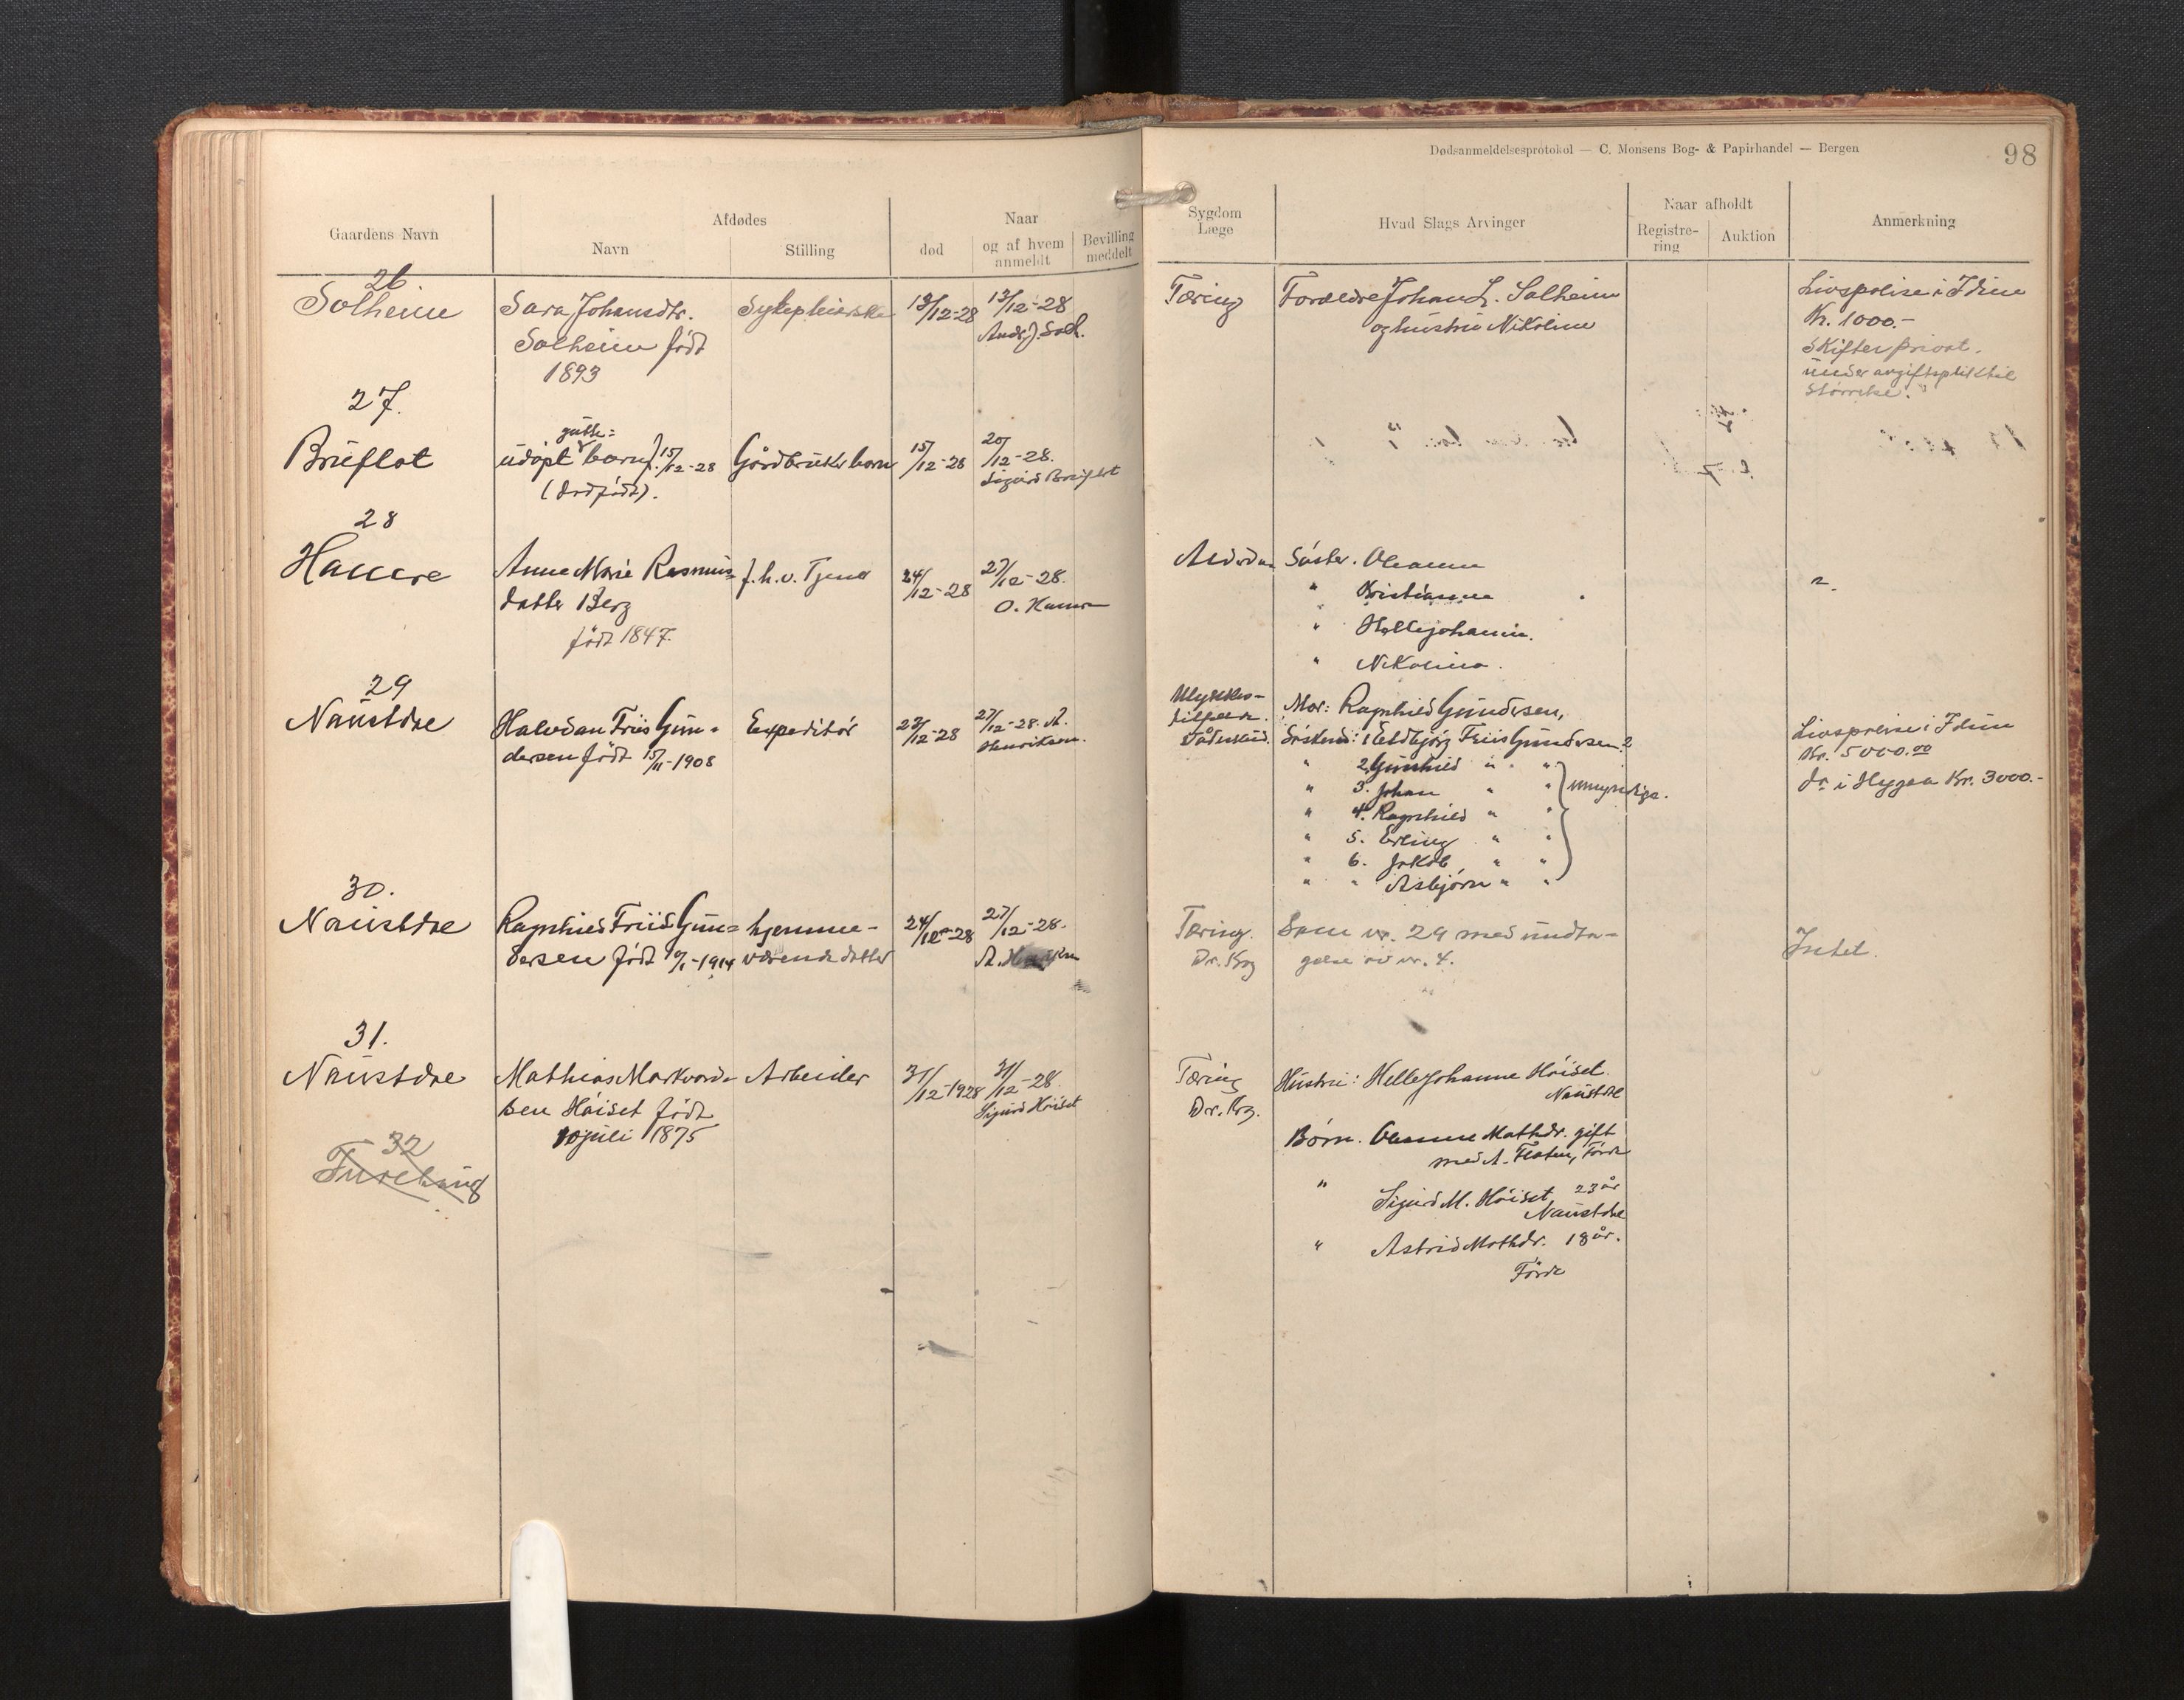 Dødsanmeldelsesprotokol — C. Monsens Bog- & Papirhandel — Bergen
98
Gaardens Navn
Afdødes
Navn
Stilling
Naar
død
og af hvem anmeldt
Bevilling meddelt
Sygdom Læge
Hvad Slags Arvinger
Naar afholdt
Registre-ring
Auktion
Anmerkning
26
Solheim
Sara Johansdtr.
Solheim födt
1893
Sykepleierske
13/12-28
Andr. J. Solh.
Tæring
Forældre Johan L. Solheim
og hustru Nikoline
Livspolise i Idun
Kr. 1000.-
Skifter privat.
under avgiftspliktil
Störrelse.
27.
Brüflot
gutte=
udöpt barn f. 15/12-28
(dødfödt).
Gårdbruker barn
15/12-28
20/12-28.
Sigurd Brüflot
28
Hamre
Anne Marie Rasmus=
datter Berg
födt 1847.
f.h.v. Tjener
24/12-28
27/12-28.
O. Hamre
Söster. Oleanne
" Kristianne
" Hellejohanne.
" Nikolina.
29
Naustdal
Halvdan Friis Gun=
dersen födt 15/11-1908
Expeditör
23/12-28
27/12-28. A.
Henriksen.
Ulykkes-
tilfælde.
Vådeskud.
Mor: Ragnhild Gundersen,
Söskend: 1 Eldbjörg Friis Gundersen
" 2 Gunhild " "
" 3. Johan " " umyndige.
" 4. Ragnhild " "
" 5. Erling " "
" 6. Jakob " "
" " Asbjörn " "
Livspolise i Idun
Kr. 5000.00
do i Hygea Kr. 3000.-
30.
Naustdal
Ragnhild Friis Gun=
dersen födt 10/1-1914
hjemme-
værende datter
24/12-28
27/12-28.
Tæring.
Dr. Krg
Som nr. 29 med undta-
gelse av nr. 4.
Intet.
31.
Naustdal
Mathias Markvard-
sen Höiset födt
10 juli 1875
Arbeider
31/12-1928
31/12-28
Sigurd Höiset
Tæring
Dr. Krg.
Hustru: Helle Johanne Höiset.
Naustdal
Börn. Oleanne Mathdr. gift
med A. Flaten, Förde
" Sigurd M. Höiset, 23 år
Naustdal
" Astrid Mathdr. 18 år.
Förde
32